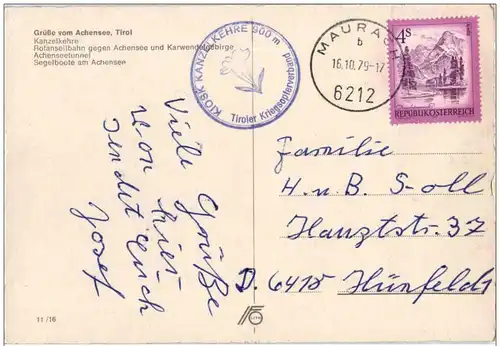 Grüße vom Achensee, Tirol
Kanzelkehre
Rofanseilbahn gegen Achensee und Karwendelgebirge
Achenseetunnel
Segelboote am Achensee
KIOSK KANZELKEHRE 900 m
Tiroler Kriegsopferverband
MAURACH
b
16.10.79-17
6212
4S
REPUBLIK ÖSTERREICH
Viele Grüße
von hier
sendet Euch
Josef
Familie
H. u. B. S-oll
Hauptstr. 37
D. 6415 Hünfeld 1
11/16